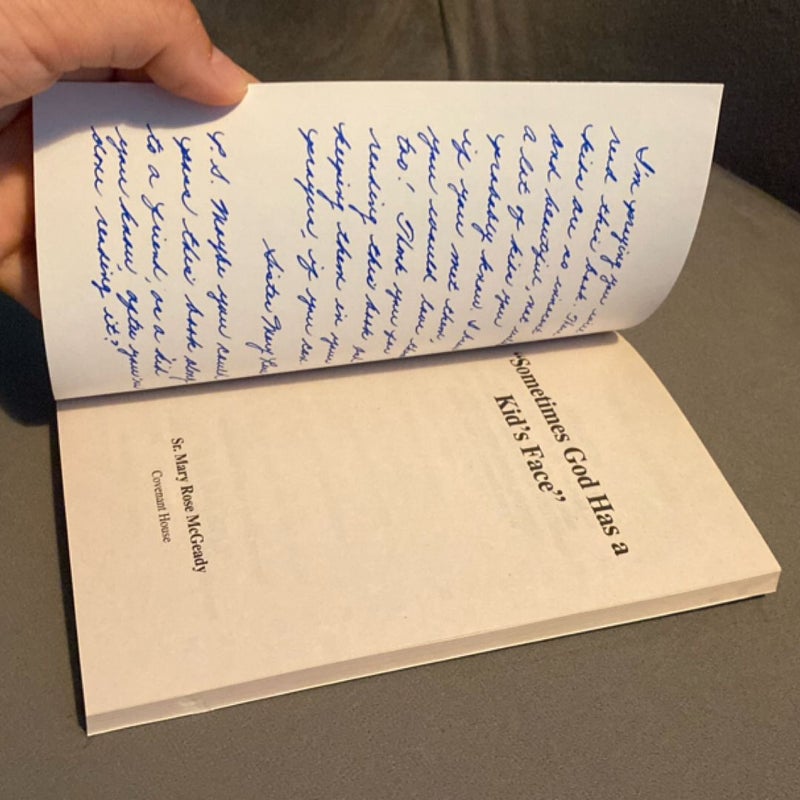 I'm praying you will
read this book. These
kids are so
and beautiful, not
a lot of kids you
probably know. I
if you met them,
you would love
too! Thank you for
reading this book
keeping them in your
prayers, if you can
Sister Mary
P.S. Maybe you could
pass this book along
to a friend, or a kid
you know, after you're
done reading it?
"Sometimes God Has a
Kid's Face"
Sr. Mary Rose McGeady
Covenant House